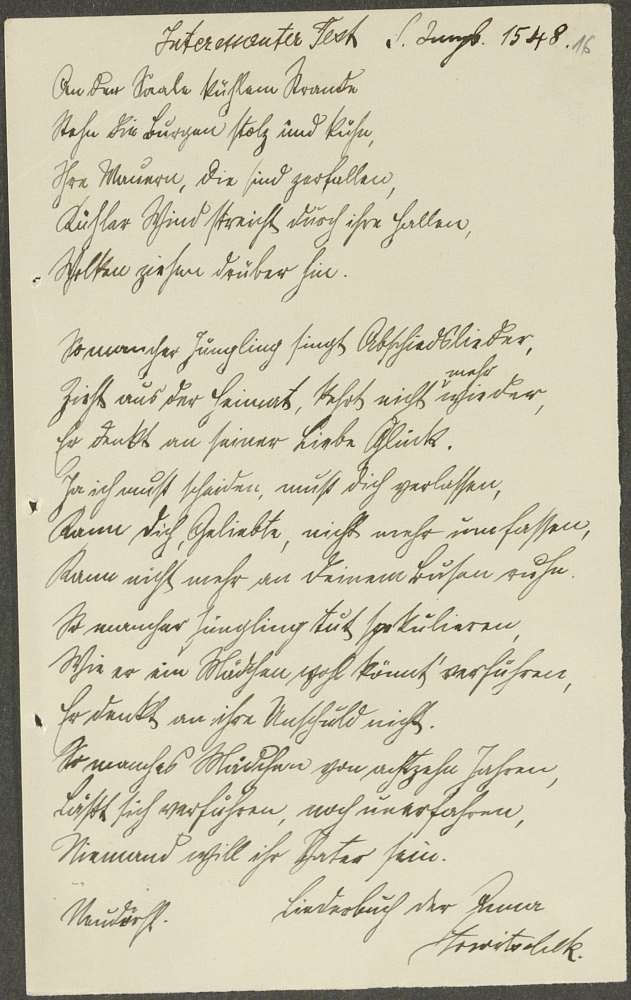 Interessanter Text S. Jungb. 1548. 16
An der Saale kühlem Strande
Stehn die Burgen stolz und kühn,
Ihre Mauern, die sind zerfallen,
Kühler Wind streicht durch ihre Hallen,
Wolken ziehen drüber hin.
So mancher Jüngling singt Abschiedslieder,
mehr
Zieht aus der Heimat, kehrt nicht wieder,
Er denkt an seiner Liebe Glück.
Ja ich muß scheiden, muß dich verlassen,
Kann dich, Geliebte, nicht mehr umfassen,
Kann nicht mehr an deinem Busen ruhn.
So mancher Jüngling tut spekulieren,
Wie er ein Mädchen wohl könnt' verführen,
Er denkt an ihre Unschuld nicht.
So manches Mädchen von achtzehn Jahren,
Läßt sich verführen, noch unerfahren,
Niemand will ihr Vater sein.
Neudörfl. Liederbuch der